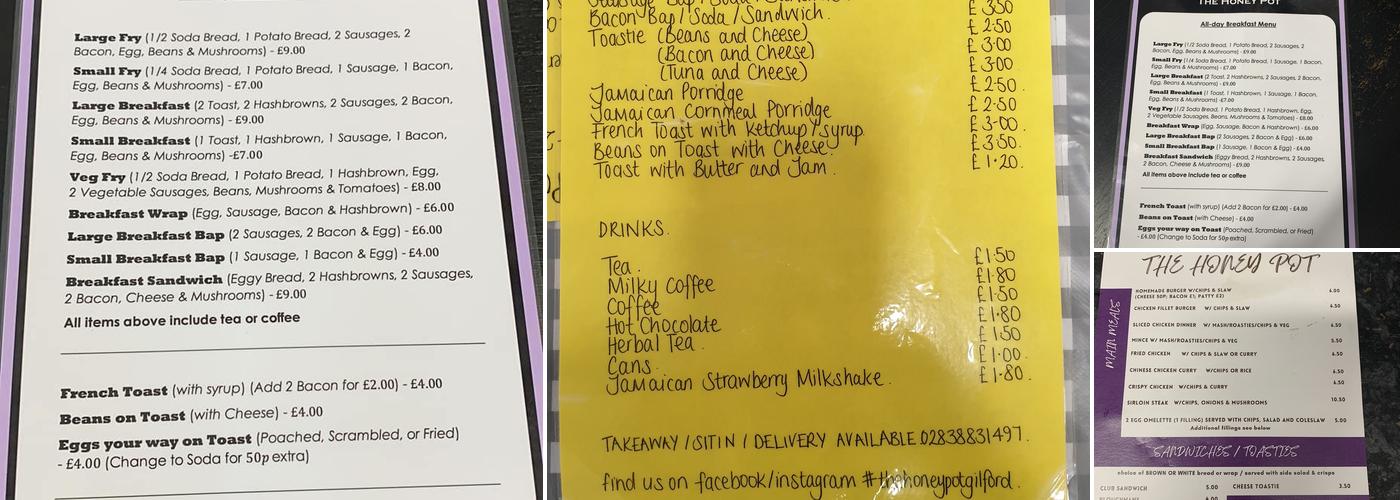 Large Fry (1/2 Soda Bread, 1 Potato Bread, 2 Sausages, 2
Bacon, Egg, Beans & Mushrooms) - £9.00
Small Fry (1/4 Soda Bread, 1 Potato Bread, 1 Sausage, 1 Bacon,
Egg, Beans & Mushrooms) - £7.00
Large Breakfast (2 Toast, 2 Hashbrowns, 2 Sausages, 2 Bacon,
Egg, Beans & Mushrooms) - £9.00
Small Breakfast (1 Toast, 1 Hashbrown, 1 Sausage, 1 Bacon,
Egg, Beans & Mushrooms) -£7.00
Veg Fry (1/2 Soda Bread, 1 Potato Bread, 1 Hashbrown, Egg,
2 Vegetable Sausages, Beans, Mushrooms & Tomatoes) - £8.00
Breakfast Wrap (Egg, Sausage, Bacon & Hashbrown) - £6.00
Large Breakfast Bap (2 Sausages, 2 Bacon & Egg) - £6.00
Small Breakfast Bap (1 Sausage, 1 Bacon & Egg) - £4.00
Breakfast Sandwich (Eggy Bread, 2 Hashbrowns, 2 Sausages,
2 Bacon, Cheese & Mushrooms) - £9.00
All items above include tea or coffee
French Toast (with syrup) (Add 2 Bacon for £2.00) - £4.00
Beans on Toast (with Cheese) - £4.00
Eggs your way on Toast (Poached, Scrambled, or Fried)
- £4.00 (Change to Soda for 50p extra)
Sausage Bap / Soda / Sandwich. £3.50
Bacon Bap / Soda / Sandwich. £2.50
Toastie (Beans and Cheese) £3.00
(Bacon and Cheese) £3.00
(Tuna and Cheese) £2.50
Jamaican Porridge £2.50
Jamaican Cornmeal Porridge £3.00
French Toast with Ketchup / syrup £3.50
Beans on Toast with Cheese. £1.20.
Toast with Butter and Jam.
DRINKS.
Tea. £1.50
Milky Coffee £1.80
Coffee £1.50
Hot Chocolate £1.80
Herbal Tea. £1.50
Cans. £1.00.
Jamaican Strawberry Milkshake. £1.80.
TAKEAWAY / SIT IN / DELIVERY AVAILABLE 02838831497.
find us on facebook/instagram #thehoneypotgilford.
THE HONEY POT
All-day Breakfast Menu
Large Fry (1/2 Soda Bread, 1 Potato Bread, 2 Sausages, 2
Bacon, Egg, Beans & Mushrooms) - £9.00
Small Fry (1/4 Soda Bread, 1 Potato Bread, 1 Sausage, 1 Bacon,
Egg, Beans & Mushrooms) - £7.00
Large Breakfast (2 Toast, 2 Hashbrowns, 2 Sausages, 2 Bacon,
Egg, Beans & Mushrooms) - £9.00
Small Breakfast (1 Toast, 1 Hashbrown, 1 Sausage, 1 Bacon,
Egg, Beans & Mushrooms) -£7.00
Veg Fry (1/2 Soda Bread, 1 Potato Bread, 1 Hashbrown, Egg,
2 Vegetable Sausages, Beans, Mushrooms & Tomatoes) - £8.00
Breakfast Wrap (Egg, Sausage, Bacon & Hashbrown) - £6.00
Large Breakfast Bap (2 Sausages, 2 Bacon & Egg) - £6.00
Small Breakfast Bap (1 Sausage, 1 Bacon & Egg) - £4.00
Breakfast Sandwich (Eggy Bread, 2 Hashbrowns, 2 Sausages,
2 Bacon, Cheese & Mushrooms) - £9.00
All items above include tea or coffee
French Toast (with syrup) (Add 2 Bacon for £2.00) - £4.00
Beans on Toast (with Cheese) - £4.00
Eggs your way on Toast (Poached, Scrambled, or Fried)
- £4.00 (Change to Soda for 50p extra)
THE HONEY POT
MAIN MEALS
HOMEMADE BURGER W/CHIPS & SLAW 6.00
(CHEESE 50P; BACON £1; PATTY £2)
CHICKEN FILLET BURGER W/ CHIPS & SLAW 6.50
SLICED CHICKEN DINNER W/ MASH/ROASTIES/CHIPS & VEG 6.50
MINCE W/ MASH/ROASTIES/CHIPS & VEG 5.50
FRIED CHICKEN W/ CHIPS & SLAW OR CURRY 6.50
CHINESE CHICKEN CURRY W/CHIPS OR RICE 6.50
CRISPY CHICKEN W/CHIPS & CURRY 6.50
SIRLOIN STEAK W/CHIPS, ONIONS & MUSHROOMS 10.50
2 EGG OMELETTE (1 FILLING) SERVED WITH CHIPS, SALAD AND COLESLAW 5.00
Additional fillings see below
SANDWICHES / TOASTIES
choice of BROWN OR WHITE bread or wrap / served with side salad & crisps
CLUB SANDWICH 5.00 CHEESE TOASTIE 3.50